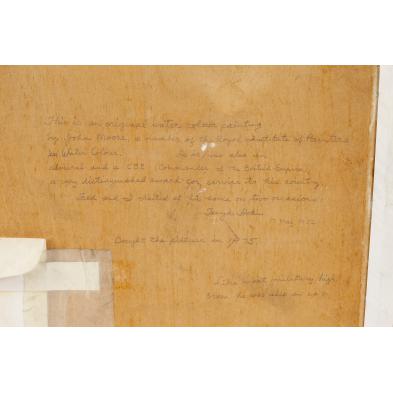 This is an original water colour painting
by John Moore, a member of the Royal Institute of Painters
in Water Colour. He is/was also an
Admiral and a CBE (Commander of the British Empire)
a very distinguished award for service to his country.
and I visited at his home on two occasions.
May
Bought the picture in
Like most military high
he was also an